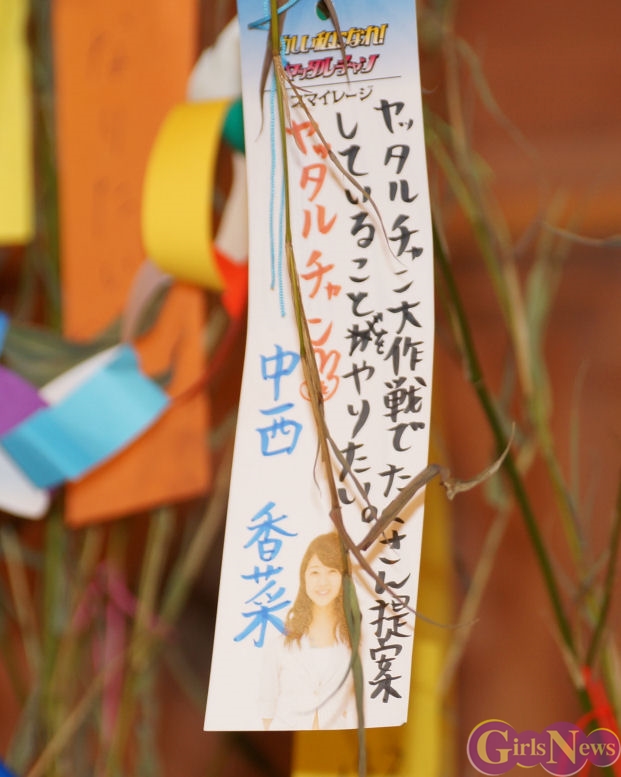 しい私になれ!
ヤッタルチャン
スマイレージ
ヤッタルチャン大作戦でたくさん提案
していることがやりたい。
ヤッタルチャン
中西 香菜
GirlsNews